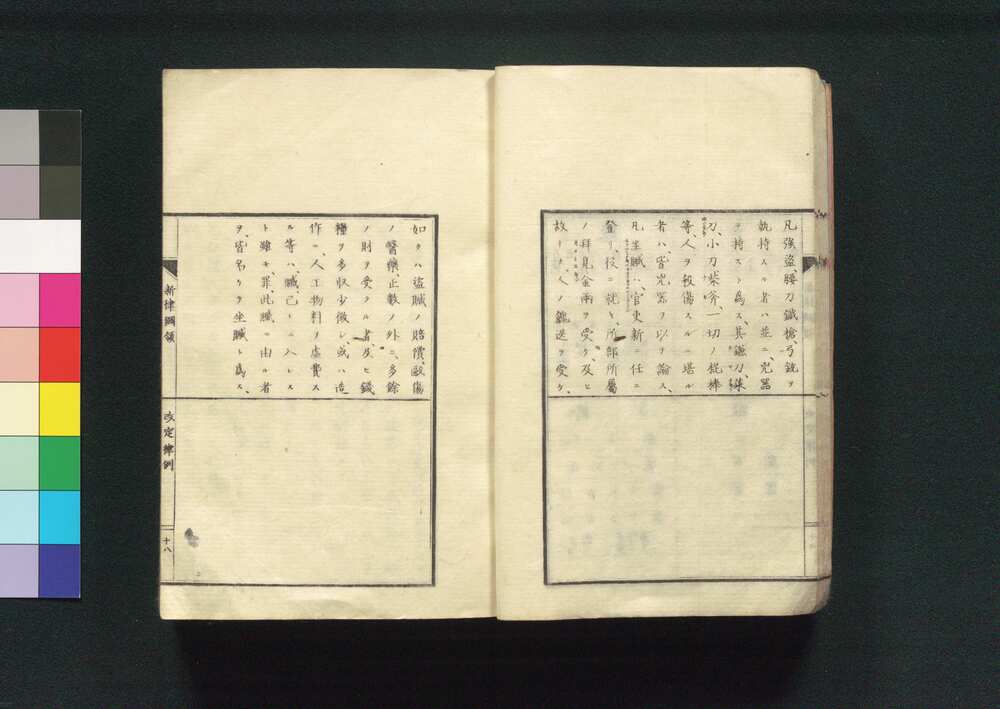 凡強盗、腰刀、鐵槍、弓銃ヲ
執持スル者ハ並ニ、兇器
ヲ持スト為ス、其鎌刀、
刀、小刀、柴斧、一切ノ棍棒
等、人ヲ殺傷スルニ堪ル
者ハ、皆兇器ヲ以テ論ス、
凡坐贓ハ、官吏新ニ任ニ
登リ、役ニ就キ、所部所屬
ノ拜見金兩ヲ受ケ、及ヒ
故ナク、人ノ餽送ヲ受ケ、
如クハ盗贓ノ賠償、毆傷
ノ醫藥、正數ノ外ニ、多餘
ノ財ヲ受クル者、及ヒ錢
糧ヲ多収少徴シ、或ハ造
作ニ、人工物料ヲ虚費ス
ル等ハ、贓、己レニ入レス
ト雖モ、罪、此贓ニ由ル者
ヲ、皆名ケテ坐贓ト為ス、
新律綱領
改定律例
十八